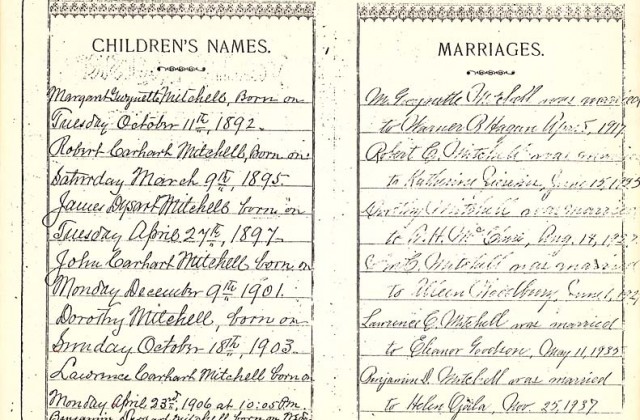 CHILDREN'S NAMES.
Margaret Gwynette Mitchell, Born on
Tuesday October 11th, 1892.
Robert Carhart Mitchell, Born on
Saturday March 9th, 1895.
James Dysart Mitchell born on
Tuesday April 27th, 1897
John Carhart Mitchell born on
Monday December 9th 1901.
Dorothy Mitchell, born on
Sunday October 18th, 1903.
Lawrence Carhart Mitchell born on
Monday April 23rd, 1906 at 10:05 Pm.
Mitchell born on
MARRIAGES.
M. Gwynette Mitchell was married
to Warner R Hagan April 5, 1917
Robert C. Mitchell was
to Katherine June 15, 19
Dorothy Mitchell was married
to G.H. Aug. 18, 19
Mitchell was married
to Aileen June 1, 19
Lawrence C. Mitchell was married
to Eleanor Goodson, May 11, 1935
Benjamin D. Mitchell was married
to Helen Nov. 25, 1937